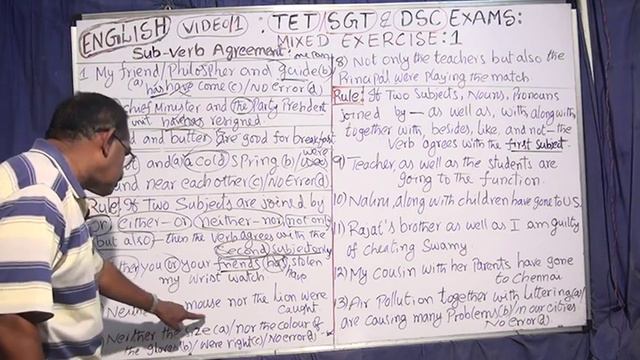 ENGLISH VIDEO/1 : TET/SGT & DSC EXAMS:
Sub-Verb Agreement: MIXED EXERCISE:1
1 My friend/Philospher and guide(b)
(a) has have come(c)/No error(d)
chief Minister and the Party President
have has resigned
and butter are good for breakfast
and (a) a cold spring (b)/ were
and near each other(c)/No Error(d)
Rule: If Two Subjects are joined by
or, either-or, neither-nor, not only
but also - then the verb agrees with the
second subject only
you or your friends has stolen
my wrist watch have
mouse nor the Lion were
caught
Neither the size(a)/nor the colour of
the gloves(b)/were right(c)/No error(d)
8) Not only the teachers but also the
Principal were playing the match
Rule: If Two Subjects, Nouns, Pronouns
joined by - as well as, with, along with
together with, besides, like, and not - the
verb agrees with the first subject
9) Teacher, as well as the students are
going to the function
10) Nalini, along with children have gone to U.S.
11) Rajat's brother as well as I am guilty
of cheating Swamy
12) My cousin with her parents have gone
to Chennai
13) Air Pollution together with Littering(a)/
are causing many Problems(b)/in our cities
No error(d)